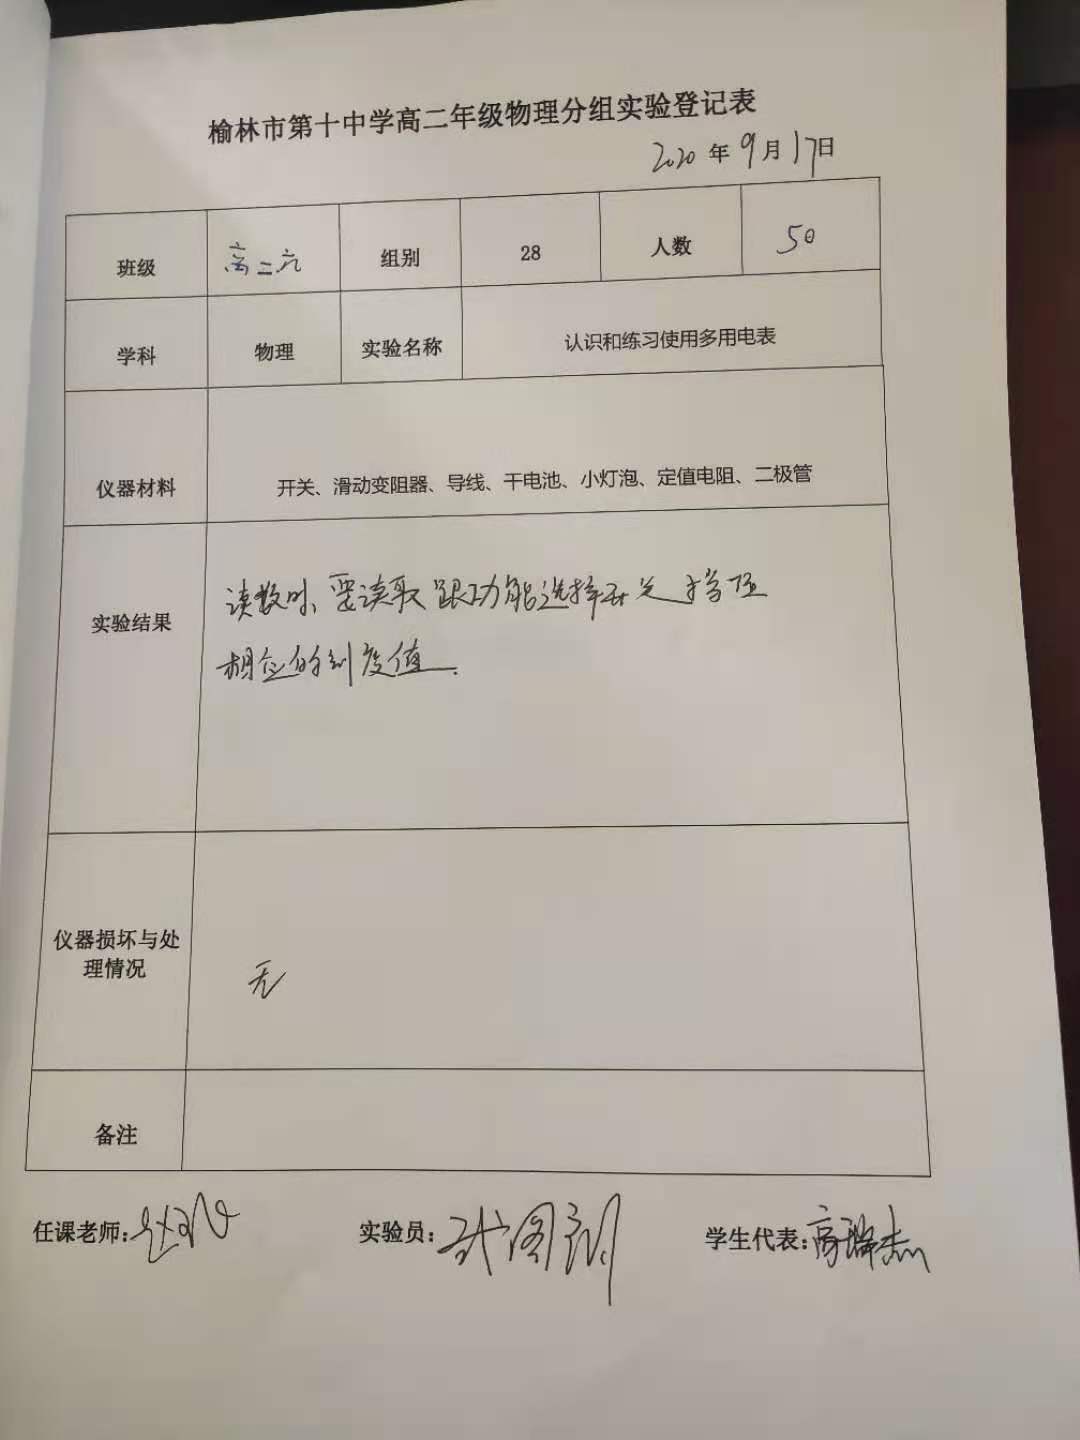 榆林市第十中学高二年级物理分组实验登记表
2020 年 9 月 17 日
班级 高二六 组别 28 人数 50
学科 物理 实验名称 认识和练习使用多用电表
仪器材料 开关、滑动变阻器、导线、干电池、小灯泡、定值电阻、二极管
实验结果 读数时、要读取跟功能选择开关挡位
相应的刻度值.
仪器损坏与处
理情况 无
备注
任课老师: 实验员: 学生代表:高瑞杰